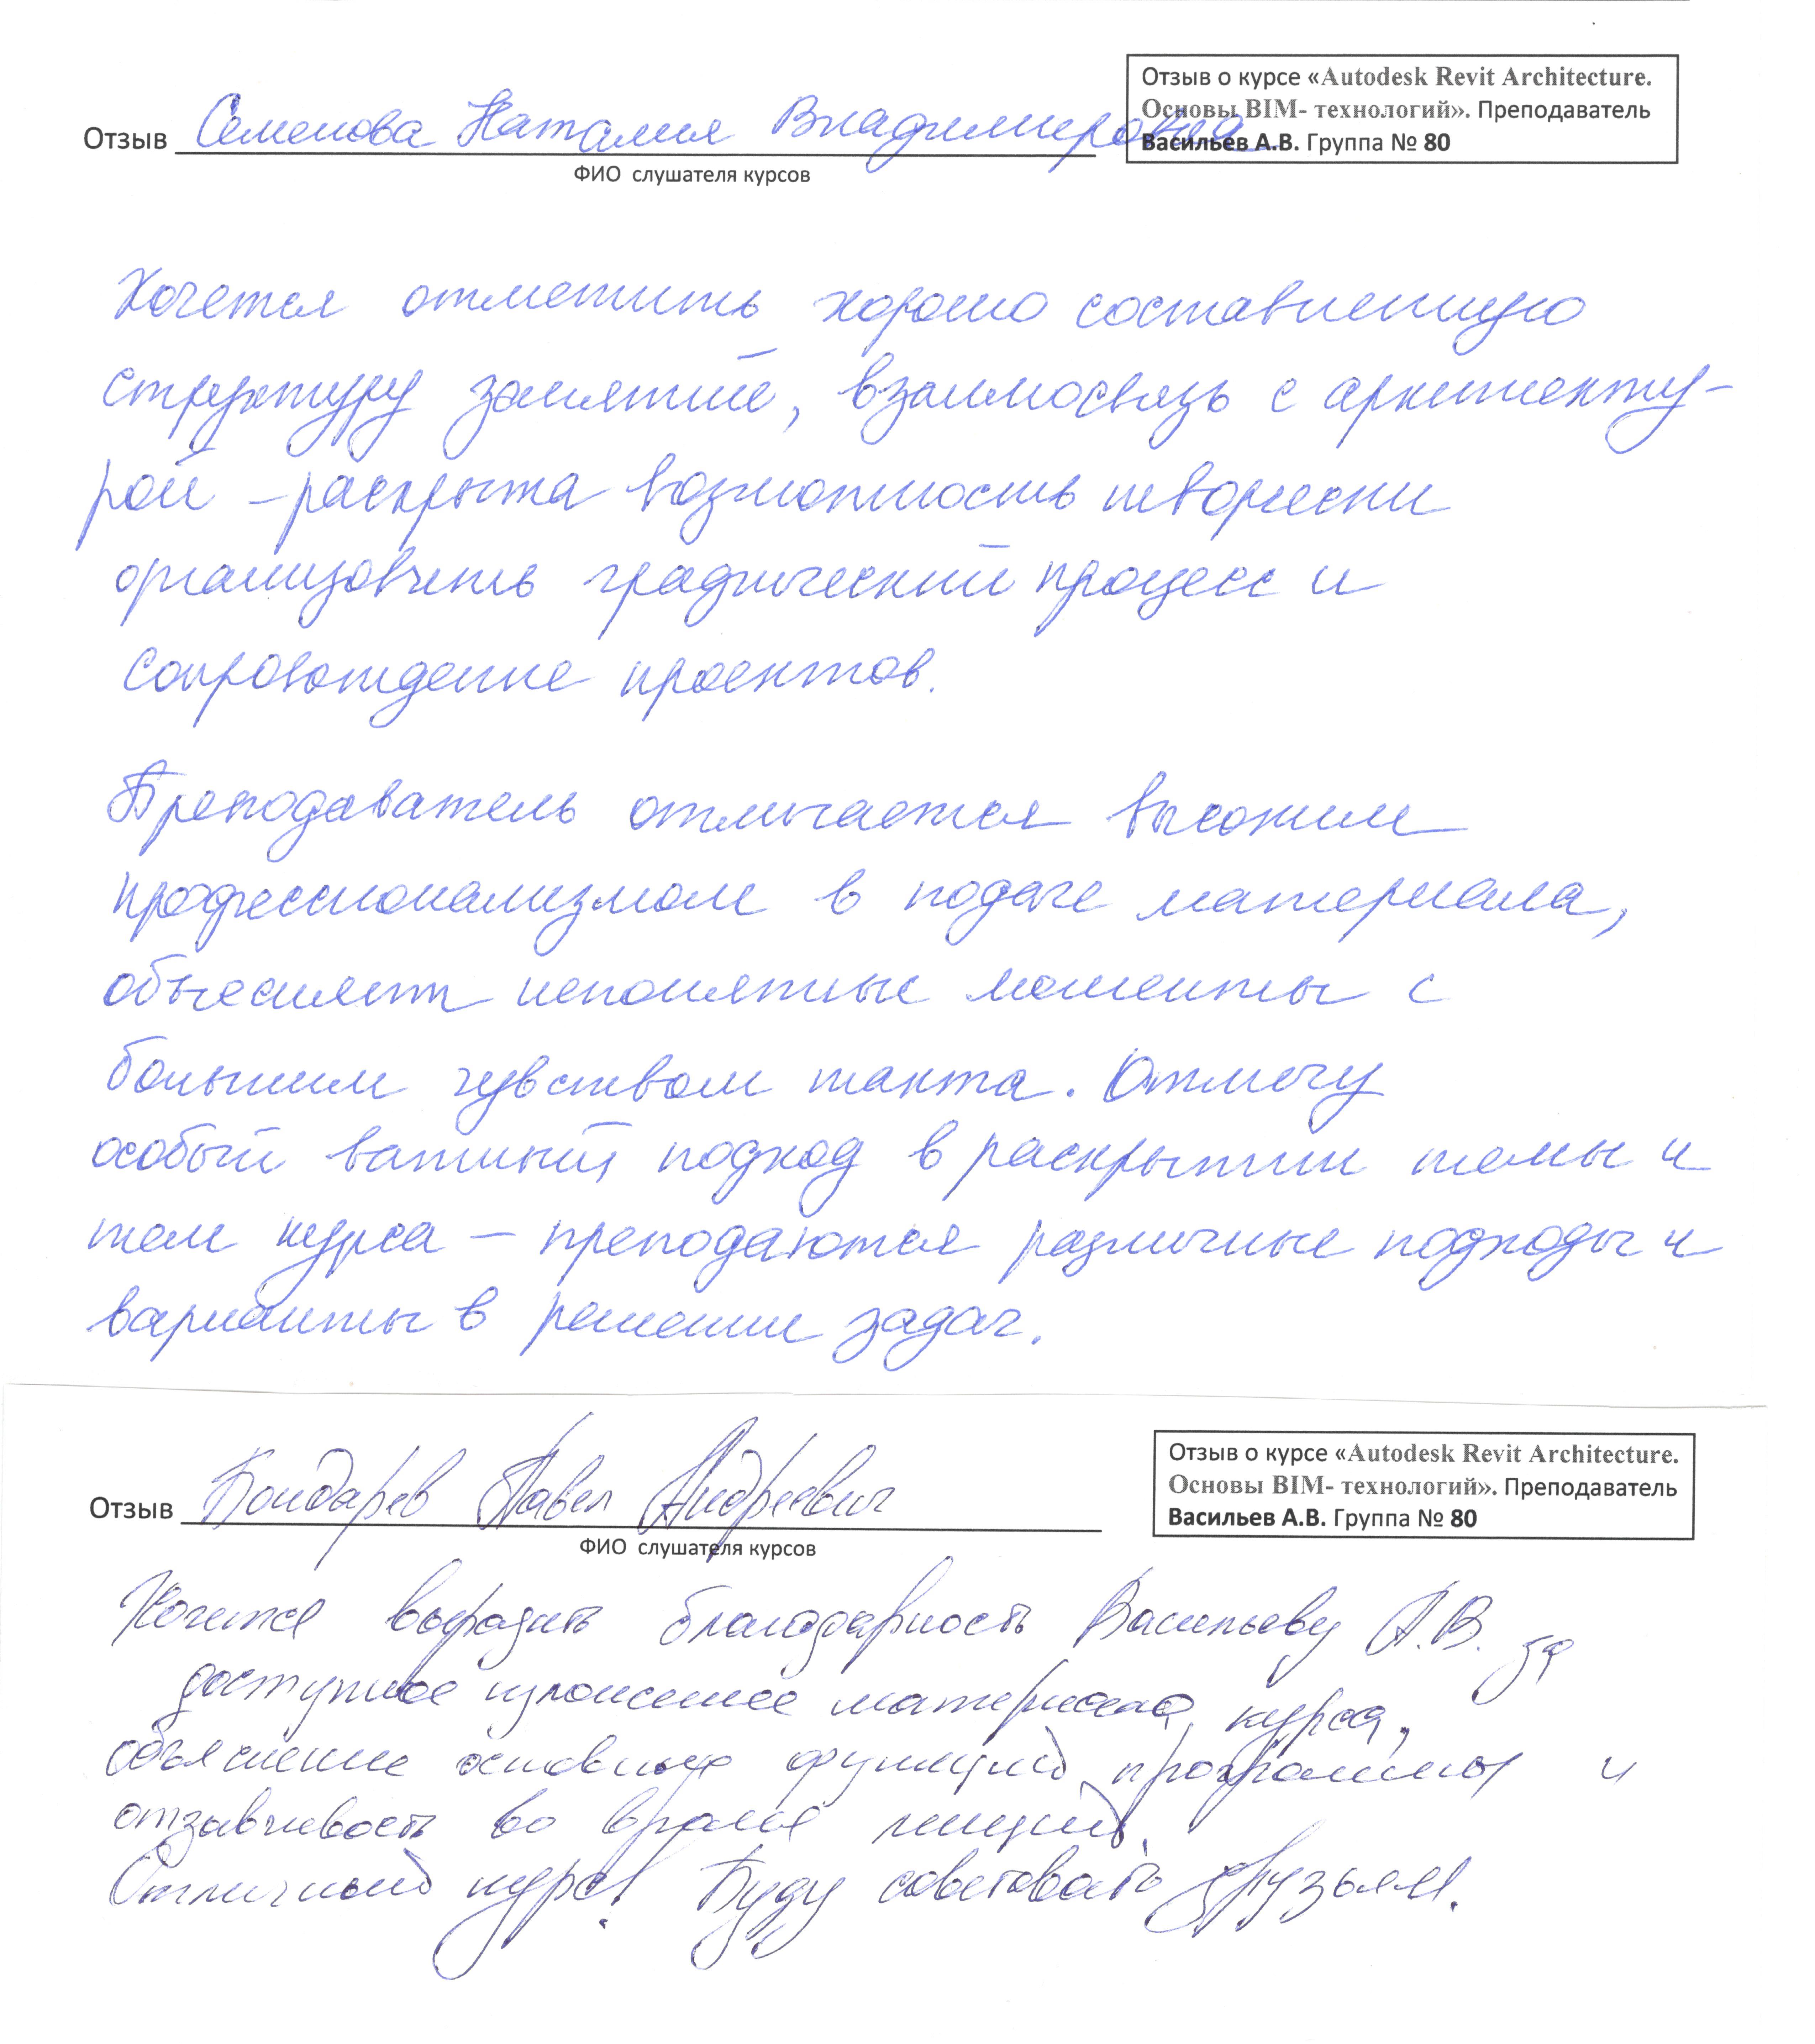 Отзыв Семенова Наталия Владимировна
ФИО слушателя курсов
Отзыв о курсе «Autodesk Revit Architecture.
Основы BIM- технологий». Преподаватель
Васильев А.В. Группа № 80
Хочется отметить хорошо составленную
структуру занятий, взаимосвязь с архитекту-
рой – раскрыта возможность творчески
организовать графический процесс и
сопровождение проектов.
Преподаватель отличается высоким
профессионализмом в подаче материала,
объясняет непонятные моменты с
большим чувством такта. Отмечу
особый важный подход в раскрытии темы и
тем курса – преподаются различные подходы и
варианты в решении задач.
Отзыв Бондарев Павел Андреевич
ФИО слушателя курсов
Отзыв о курсе «Autodesk Revit Architecture.
Основы BIM- технологий». Преподаватель
Васильев А.В. Группа № 80
Хочется выразить благодарность Васильеву А.В. за
доступное изложение материала курса,
объяснение основных функций программы и
отзывчивость во время лекций.
Отличный курс! Буду советовать друзьям.